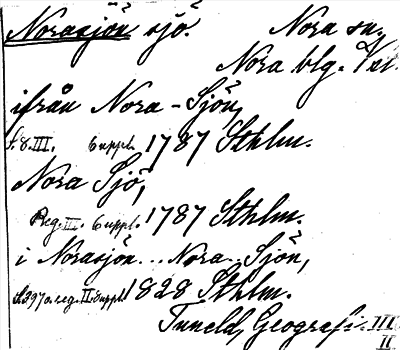 Norasjön sjö. Nora sn.
Nora blg. Vstl.
ifrån Nora-Sjön,
s. 8. III. 6 uppl. 1787 Sthlm.
Nora Sjö,
Reg. II. 6 uppl. 1787 Sthlm.
i Norasjön... Nora Sjön,
reg. II. uppl. 1828 Sthlm.
Tuneld, Geografi. III
II